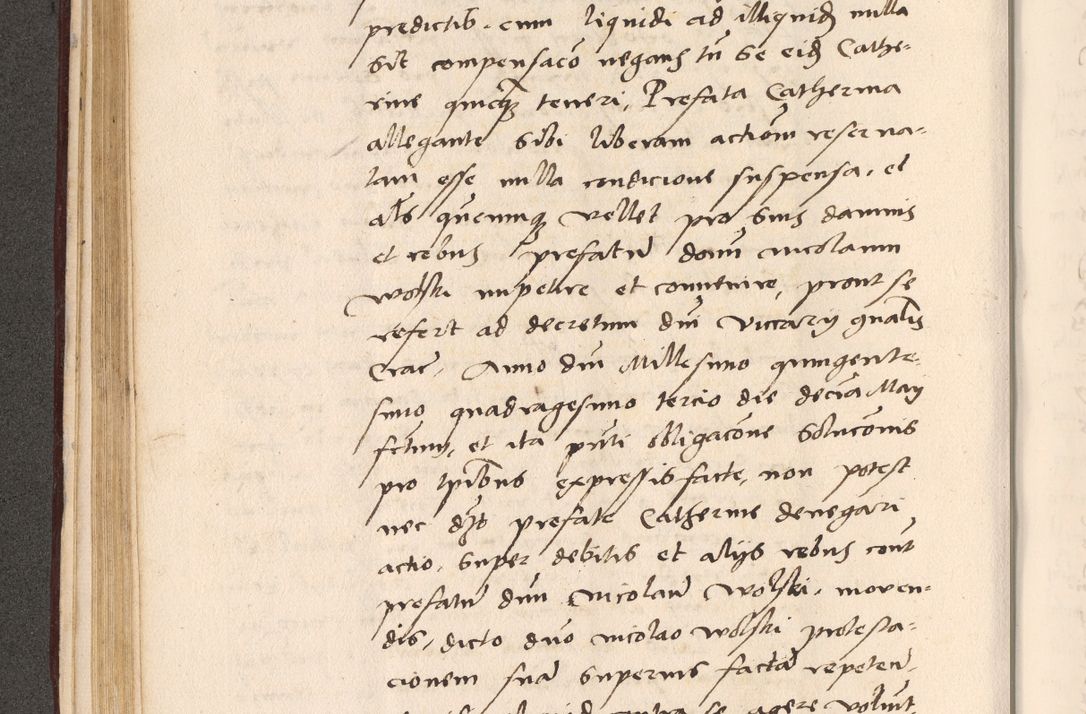 predictis. cum liquidi ad illiquid nulla
sit compensaco negans tn se eid Cathe-
rine quicq teneri, Prefata Catherina
allegante sibi liberam actiom reserua-
tam esse nulla condicione suspensa, et
als quemcuq vellet pro suis damnis
et rebus prefatu domi nicolaum
wolski impetere et conuenire, prout se
refert ad decretum dni vicarij gnalis
Crac, Anno dni Millesimo quingente-
simo quadragesimo tercio die decia Maij
fctum, et ita pnti obligacone solucois
pro tpibus expressis facte, non potest
nec dz prefate Catherine denegari
actio, super debitis et alijs rebus cont
prefatu dnm nicolau wolski, mouen-
dis, dicto dno nicolao wolski protesta-
cionem sua superius facta repeten,
contra se agere voluit